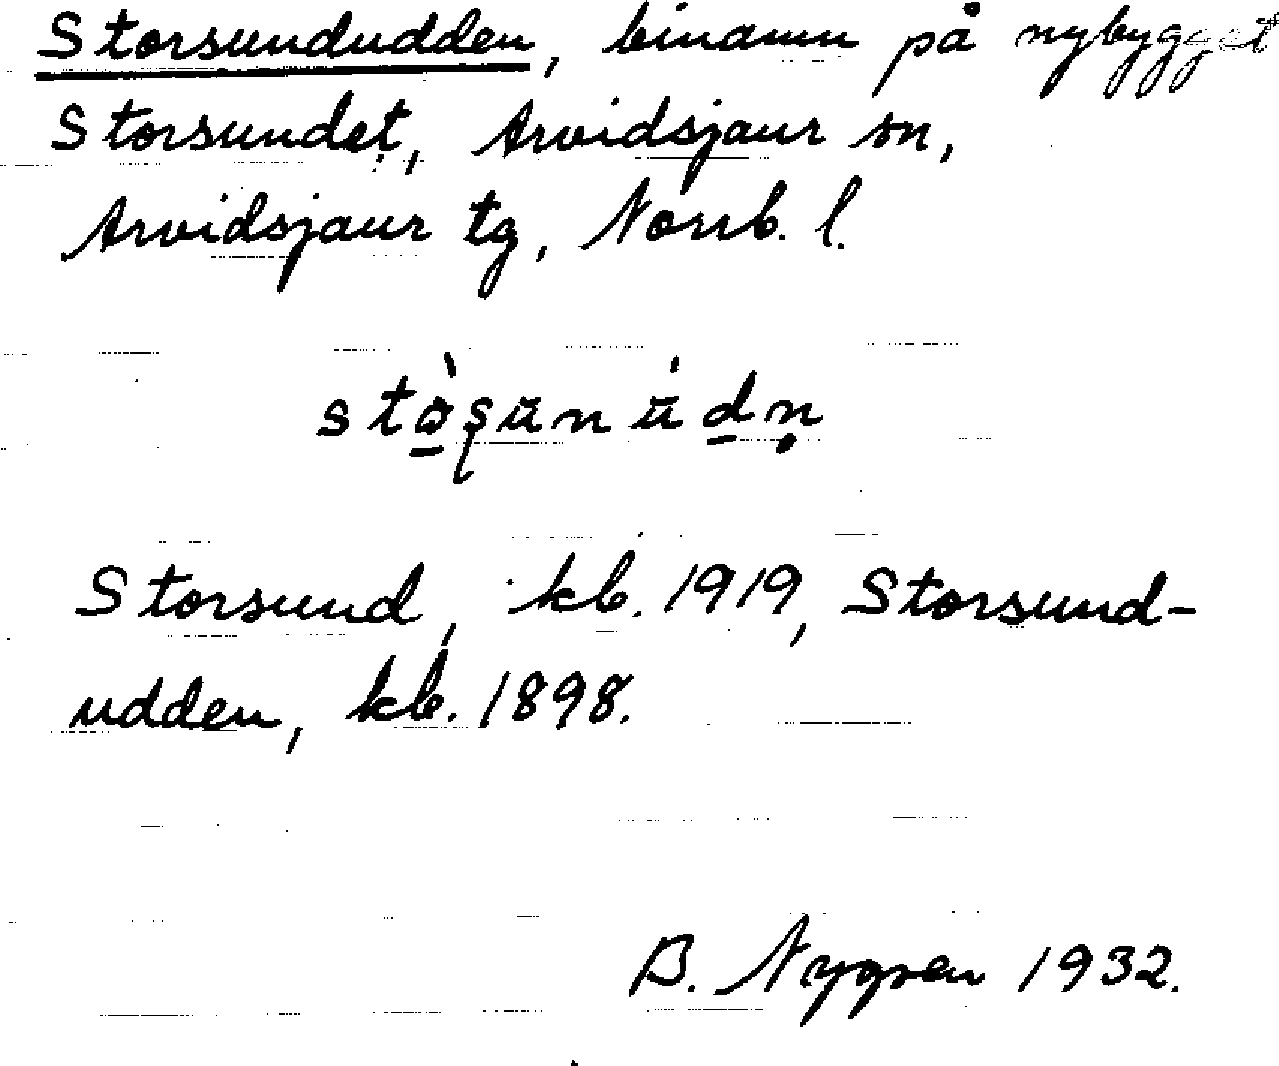 Storsundudden, binamn på nybygget
Storsundet, Arvidsjaur sn,
Arvidsjaur tg, Norrb. l.
Storsund, kb. 1919, Storsund-
udden, kb. 1898.
B. Nygren 1932.